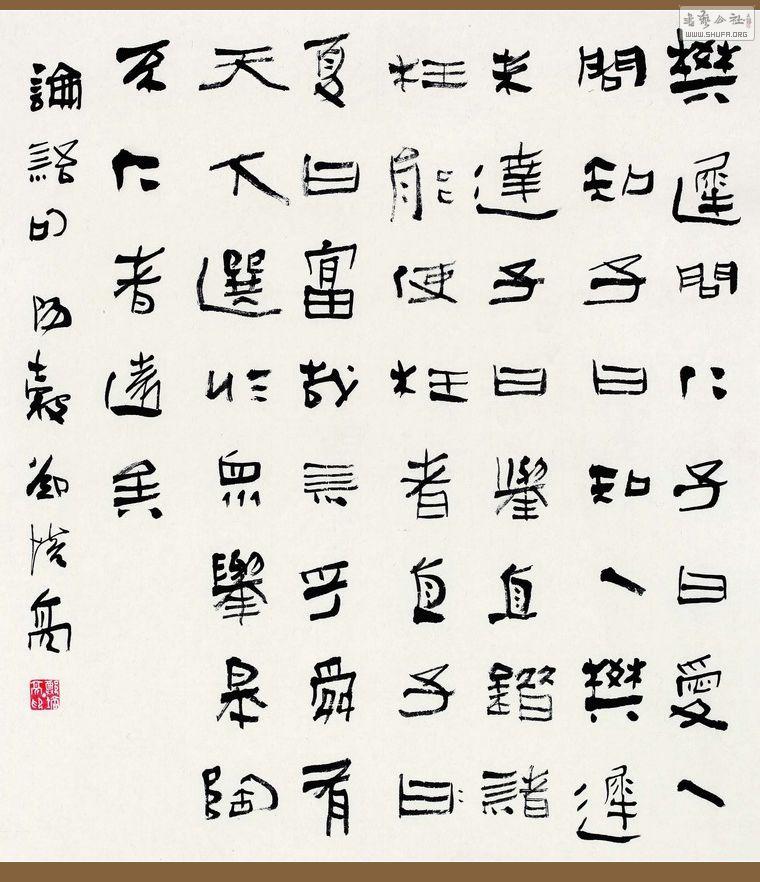 樊遲問仁子曰愛人
問知子曰知人樊遲
未達子曰舉直錯諸
枉能使枉者直子曰
夏曰富哉言乎舜有
天下選於眾舉皋陶
不仁者遠矣
論語句 鄭培亮
書藝公社
WWW.SHUFA.ORG